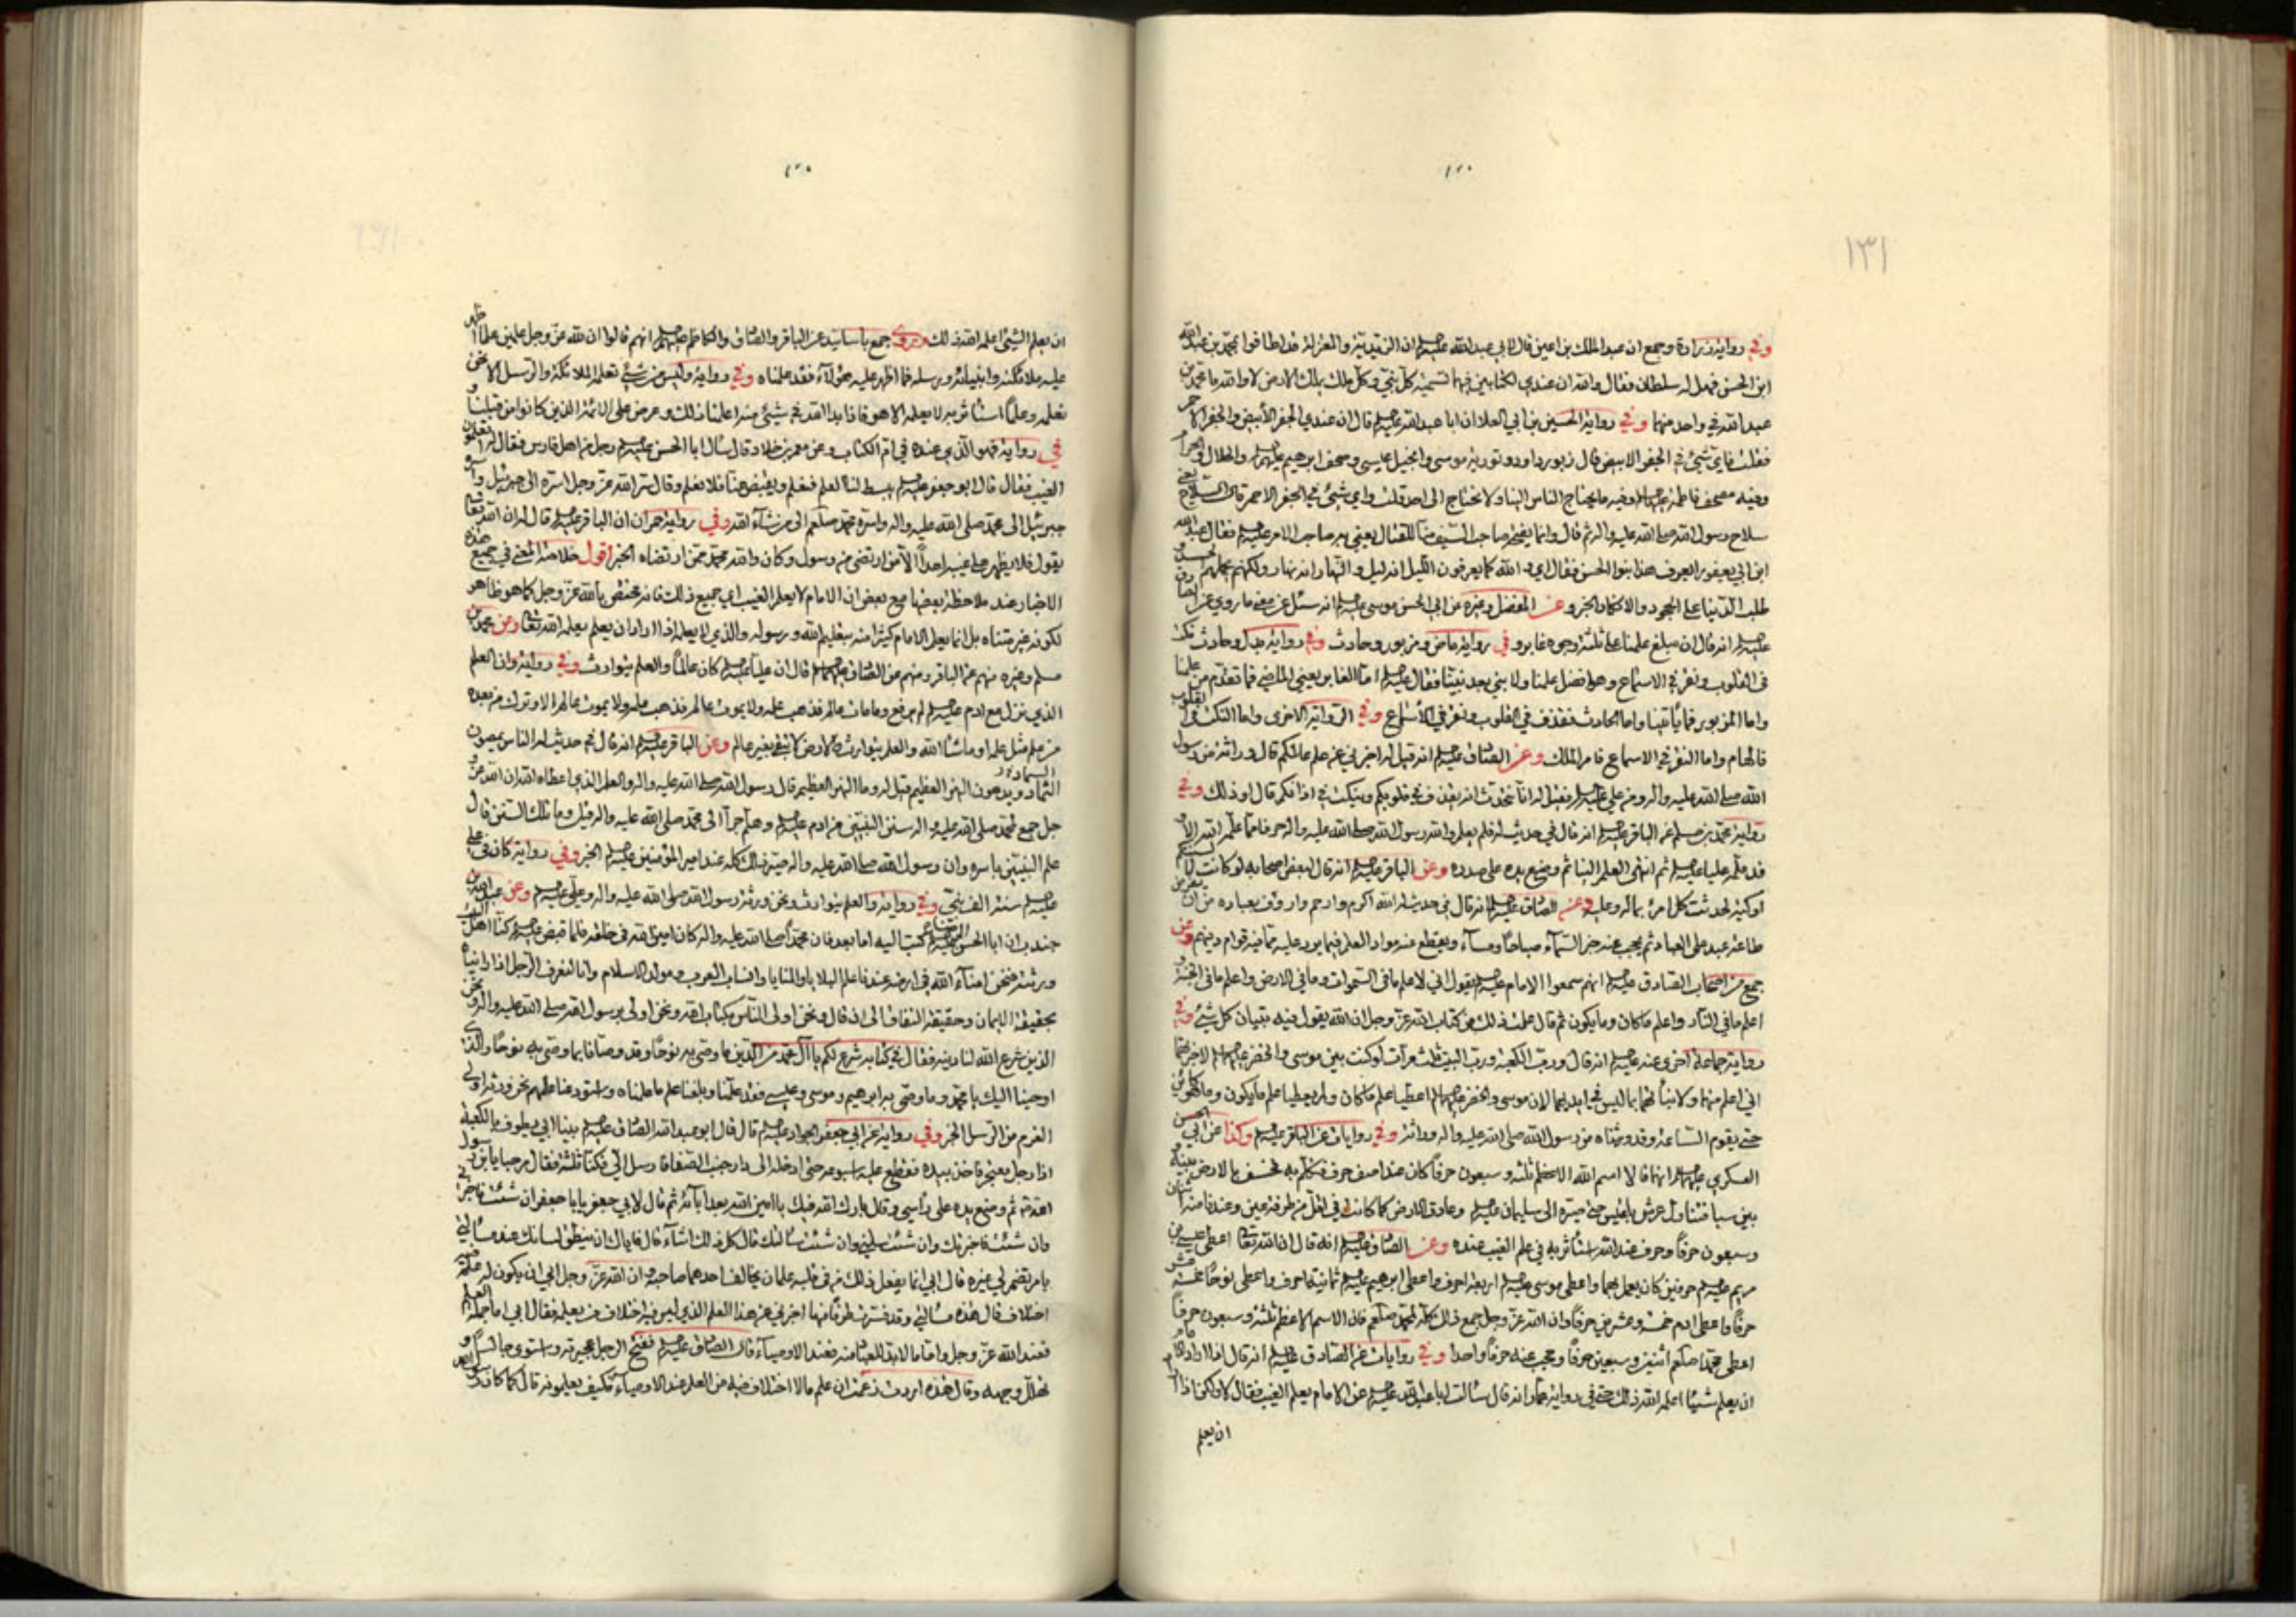 ١٣١
وفي رواية زرارة وجمع ان عبد الملك بن اعين قال لابي عبد الله عليه السلم ان الزيدية والمعتزلة قد اطافوا بمحمد بن عبد الله
ابن الحسن فهل له سلطان فقال والله ان عندي لكتابين فيهما تسمية كل نبي وكل ملك يملك الارض لا والله ما محمد بن
عبد الله في واحد منهما وفي رواية الحسين بن ابي العلا ان ابا عبد الله عليه السلم قال ان عندي الجفر الأبيض والجفر الاحمر
فقلت فاي شيئ في الجفر الابيض قال زبور داود وتورية موسى وانجيل عيسى وصحف ابرهيم عليهم السلم والحلال والحرام
وفيه مصحف فاطمة عليها السلم وفيه ما يحتاج الناس الينا ولا نحتاج الى احد قلت واي شيئ في الجفر الاحمر قال السلاح
سلاح رسول الله صلى الله عليه واله ثم قال وانما يفتحه صاحب السيف للقتال يعني به صاحب الامر عليه السلم فقال عبد الله
ابن ابي يعفور ايعرف هذا بنوا الحسن فقال اي والله كما يعرفون الليل انه ليل والنهار انه نهار ولكنهم يحملهم الحسد و
طلب الدنيا على الجحود والانكار الخبر وعن المفضل وغيره عن ابي الحسن موسى عليه السلم انه سئل عن معنى ما روي عن الصادق
عليه السلم انه قال ان مبلغ علمنا على ثلثة وجوه غابر وفي رواية ماض ومزبور وحادث وفي رواية بدل وحادث نكت
في القلوب ونقر في الاسماع وهو افضل علمنا ولا نبي بعد نبينا فقال عليه السلم اما الغابر يعني الماضي فما تقدم من علمنا
واما المزبور فما يأتينا واما الحادث فقذف في القلوب ونقر في الأسماع وفي الرواية الاخرى واما النكت في القلوب
فالهام واما النقر في الاسماع فامر الملك وعن الصادق عليه السلم انه قيل له اخبرني عن علم عالمكم قال وراثة من رسول
الله صلى الله عليه واله ومن علي عليه السلم فقيل له انا نتحدث انه يقذف في قلوبكم وينكت في اذانكم قال او ذلك وفي
رواية محمد بن مسلم عن الباقر عليه السلم انه قال في حديث له فلم يعلم والله رسول الله صلى الله عليه واله حرفا مما علمه الله الا و
قد علمه عليا عليه السلم ثم انتهى العلم الينا ثم وضع يده على صدره وعن الباقر عليه السلم انه قال لبعض اصحابه لو كانت لألسنتكم
اوكية لحدثت كل امرئ بما له وعليه وعن الصادق عليه السلم انه قال في حديث له الله اكرم وارحم وارؤف بعباده من ان يفرض
طاعة عبد على العباد ثم يحجب عنه خبر السماء صباحا ومساء ويقطع عنه مواد العلم فيما يرد عليه مما فيه قوام دينهم وعن
جمع من اصحاب الصادق عليه السلم انهم سمعوا الامام عليه السلم يقول اني لاعلم ما في السموات وما في الارض واعلم ما في الجنة و
اعلم ما في النار واعلم ما كان وما يكون ثم قال علمت ذلك من كتاب الله عز وجل ان الله يقول فيه تبيان كل شيئ وفي
رواية جماعة اخرى عنه عليه السلم انه قال ورب الكعبة ورب البيت ثلث مرات لو كنت بين موسى والخضر عليهما السلم لاخبرتهما
اني اعلم منهما ولانبأتهما بما ليس في ايديهما لان موسى والخضر عليهما السلم اعطيا علم ما كان ولم يعطيا علم ما يكون وما هو كاين
حتى يقوم الساعة وقد ورثناه من رسول الله صلى الله عليه واله وراثة وفي روايات عن الباقر عليه السلم وكذا عن ابي الحسن
العسكري عليهما السلم انهما قالا اسم الله الاعظم ثلثة وسبعون حرفا كان عند اصف حرف فتكلم به فخسف بالارض بينه و
بين سبا فتناول عرش بلقيس حتى صيره الى سليمان عليه السلم وعادت الارض كما كانت في اقل من طرفة عين وعندنا منه اثنان
وسبعون حرفا وحرف عند الله استأثر به في علم الغيب عنده وعن الصادق عليه السلم انه قال ان الله تعالى اعطى عيسى بن
مريم عليه السلم حرفين كان يعمل بهما واعطى موسى عليه السلم اربعة احرف واعطى ابرهيم عليه السلم ثمانية احرف واعطى نوحا خمسة عشر
حرفا واعطى ادم خمسة وعشرين حرفا وان الله عز وجل جمع ذلك كله لمحمد صلعم فان الاسم الاعظم ثلثة وسبعون حرفا
اعطى محمدا صلعم اثنين وسبعين حرفا وحجب عنه حرفا واحدا وفي روايات عن الصادق عليه السلم انه قال اذا اراد الامام
ان يعلم شيئا اعلمه الله ذلك حتى في رواية عمار انه قال سالت ابا عبد الله عليه السلم عن الامام يعلم الغيب فقال لا ولكن اذا اراد
ان يعلم
ان يعلم الشيئ اعلمه الله ذلك وروى جمع بأسانيد عن الباقر والصادق والكاظم عليهم السلم انهم قالوا ان لله عز وجل علمين علما اظهر
عليه ملائكته وانبيائه ورسله فما اظهر عليه هؤلاء فقد علمناه وفي رواية وليس من شيئ تعلمه الملائكة والرسل الا نحن
نعلمه وعلما استأثر به لا يعلمه الا هو فاذا بدا لله في شيئ منه اعلمنا ذلك وعرض على الائمة الذين كانوا من قبلنا و
في رواية فهو الذي عنده في ام الكتاب وعن معمر بن خلاد قال سأل ابا الحسن عليه السلم رجل من اهل فارس فقال له اتعلمون
الغيب فقال قال ابو جعفر عليه السلم يبسط لنا العلم فنعلم ويقبض عنا فلا نعلم وقال سر الله عز وجل اسره الى جبرئيل واسره
جبرئيل الى محمد صلى الله عليه واله واسره محمد صلعم الى من شاء الله وفي رواية حمران ان الباقر عليه السلم قال له ان الله تعالى
يقول فلا يظهر على غيبه احدا الا من ارتضى من رسول وكان والله محمد ممن ارتضاه الخبر اقول خلاصة المعنى في جميع هذه
الاخبار عند ملاحظة بعضها مع بعض ان الامام لا يعلم الغيب اي جميع ذلك فانه مختص بالله عز وجل كما هو ظاهر
لكونه غير متناه بل انما يعلم الامام كثيرا منه بتعليم الله ورسوله والذي لا يعلمه اذا اراد ان يعلم يعلمه الله تعالى وعن محمد بن
مسلم وغيره منهم عن الباقر ومنهم عن الصادق عليهما السلم قال ان عليا عليه السلم كان عالما والعلم يتوارث وفي رواية وان العلم
الذي نزل مع ادم عليه السلم لم يرفع وما مات عالم فذهب علمه ولا يموت عالم الا وترك من بعده
من يعلم مثل علمه او ما شاء الله والعلم يتوارث والارض لا تبقى بغير عالم وعن الباقر عليه السلم انه قال في حديث له الناس يمصون
الثماد ويدعون النهر العظيم قيل له وما النهر العظيم قال رسول الله صلى الله عليه واله والعلم الذي اعطاه الله ان الله عز و
جل جمع لمحمد صلى الله عليه واله سنن النبيين من ادم عليه السلم وهلم جرا الى محمد صلى الله عليه واله قيل وما تلك السنن قال
علم النبيين باسره وان رسول الله صلى الله عليه واله صير ذلك كله عند امير المؤمنين عليه السلم الخبر وفي رواية كان في علي
عليه السلم سنة الف نبي وفي رواية والعلم يتوارث ونحن ورثة رسول الله صلى الله عليه واله وعلي عليه السلم وعن عبد الله بن
جندب ان ابا الحسن الرضا عليه السلم كتب اليه اما بعد فان محمدا صلى الله عليه واله كان امين الله في خلقه فلما قبض عليه السلم كنا اهل البيت
ورثته فنحن امناء الله في ارضه عندنا علم البلايا والمنايا وانساب العرب ومولد الاسلام وانا لنعرف الرجل اذا رأيناه
بحقيقة الايمان وحقيقة النفاق الى ان قال ونحن اولى الناس بكتاب الله ونحن اولى برسول الله صلى الله عليه واله ونحن
الذين شرع الله لنا دينه فقال في كتابه شرع لكم يا آل محمد من الدين ما وصى به نوحا وقد وصانا بما وصى به نوحا والذي
اوحينا اليك يا محمد وما وصى به ابرهيم وموسى وعيسى فقد علمنا وبلغنا علم ما علمناه واستودعنا علمهم نحن ورثة اولي
العزم من الرسل الخبر وفي رواية عن ابي جعفر الجواد عليه السلم قال قال ابو عبد الله الصادق عليه السلم بينا ابي يطوف بالكعبة
اذا رجل معتجر فاخذ بيده فقطع عليه اسبوعه حتى ادخله الى دار جنب الصفا فارسل الي فكنا ثلثة فقال مرحبا يابن رسول
الله ثم وضع يده على رأسي وقال بارك الله فيك يا امين الله بعد ابائه ثم قال لابي جعفر يا ابا جعفر ان شئت فاخبرني
وان شئت فاخبرتك وان شئت سلني وان شئت سالتك قال كل ذلك اشاء قال فاياك ان ينطق لسانك عند مسالتي
بامر تضمر لي غيره قال ابي انما يفعل ذلك من في قلبه علمان يخالف احدهما صاحبه وان الله عز وجل ابى ان يكون له علم فيه
اختلاف قال هذه مسالتي وقد فسرت طرفا منها اخبرني عن هذا العلم الذي ليس فيه اختلاف من يعلمه فقال ابي اما جملة العلم
فعند الله عز وجل واما ما لا بد للعباد منه فعند الاوصياء قال الصادق عليه السلم ففتح الرجل عجيرته واستوى جالسا و
تهلل وجهه وقال هذه اردت زعمت ان علم ما لا اختلاف فيه من العلم عند الاوصياء فكيف يعلمونه قال كما كان رسول الله